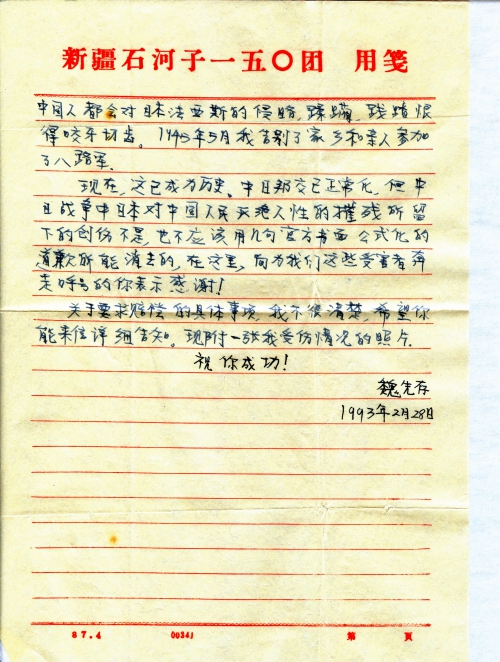 新疆石河子一五〇团 用笺
中国人都会对日本法西斯的侵略,蹂躏,践踏恨
得咬牙切齿。1945年5月我告别了家乡和亲人参加
了八路军.
现在,这已成为历史、中日邦交已正常化,但中
日战争中日本对中国人民灭绝人性的摧残所留
下的创伤不是,也不应该用几句官方书面公式化的
道歉所能消去的,在这里,向为我们这些受害者奔
走呼号的你表示感谢!
关于要求赔偿的具体事项,我不很清楚,希望你
能来信详细告知。现附一张我受伤情况的照片.
祝你成功!
魏先存
1993年2月28日
87.4 00341 第 页